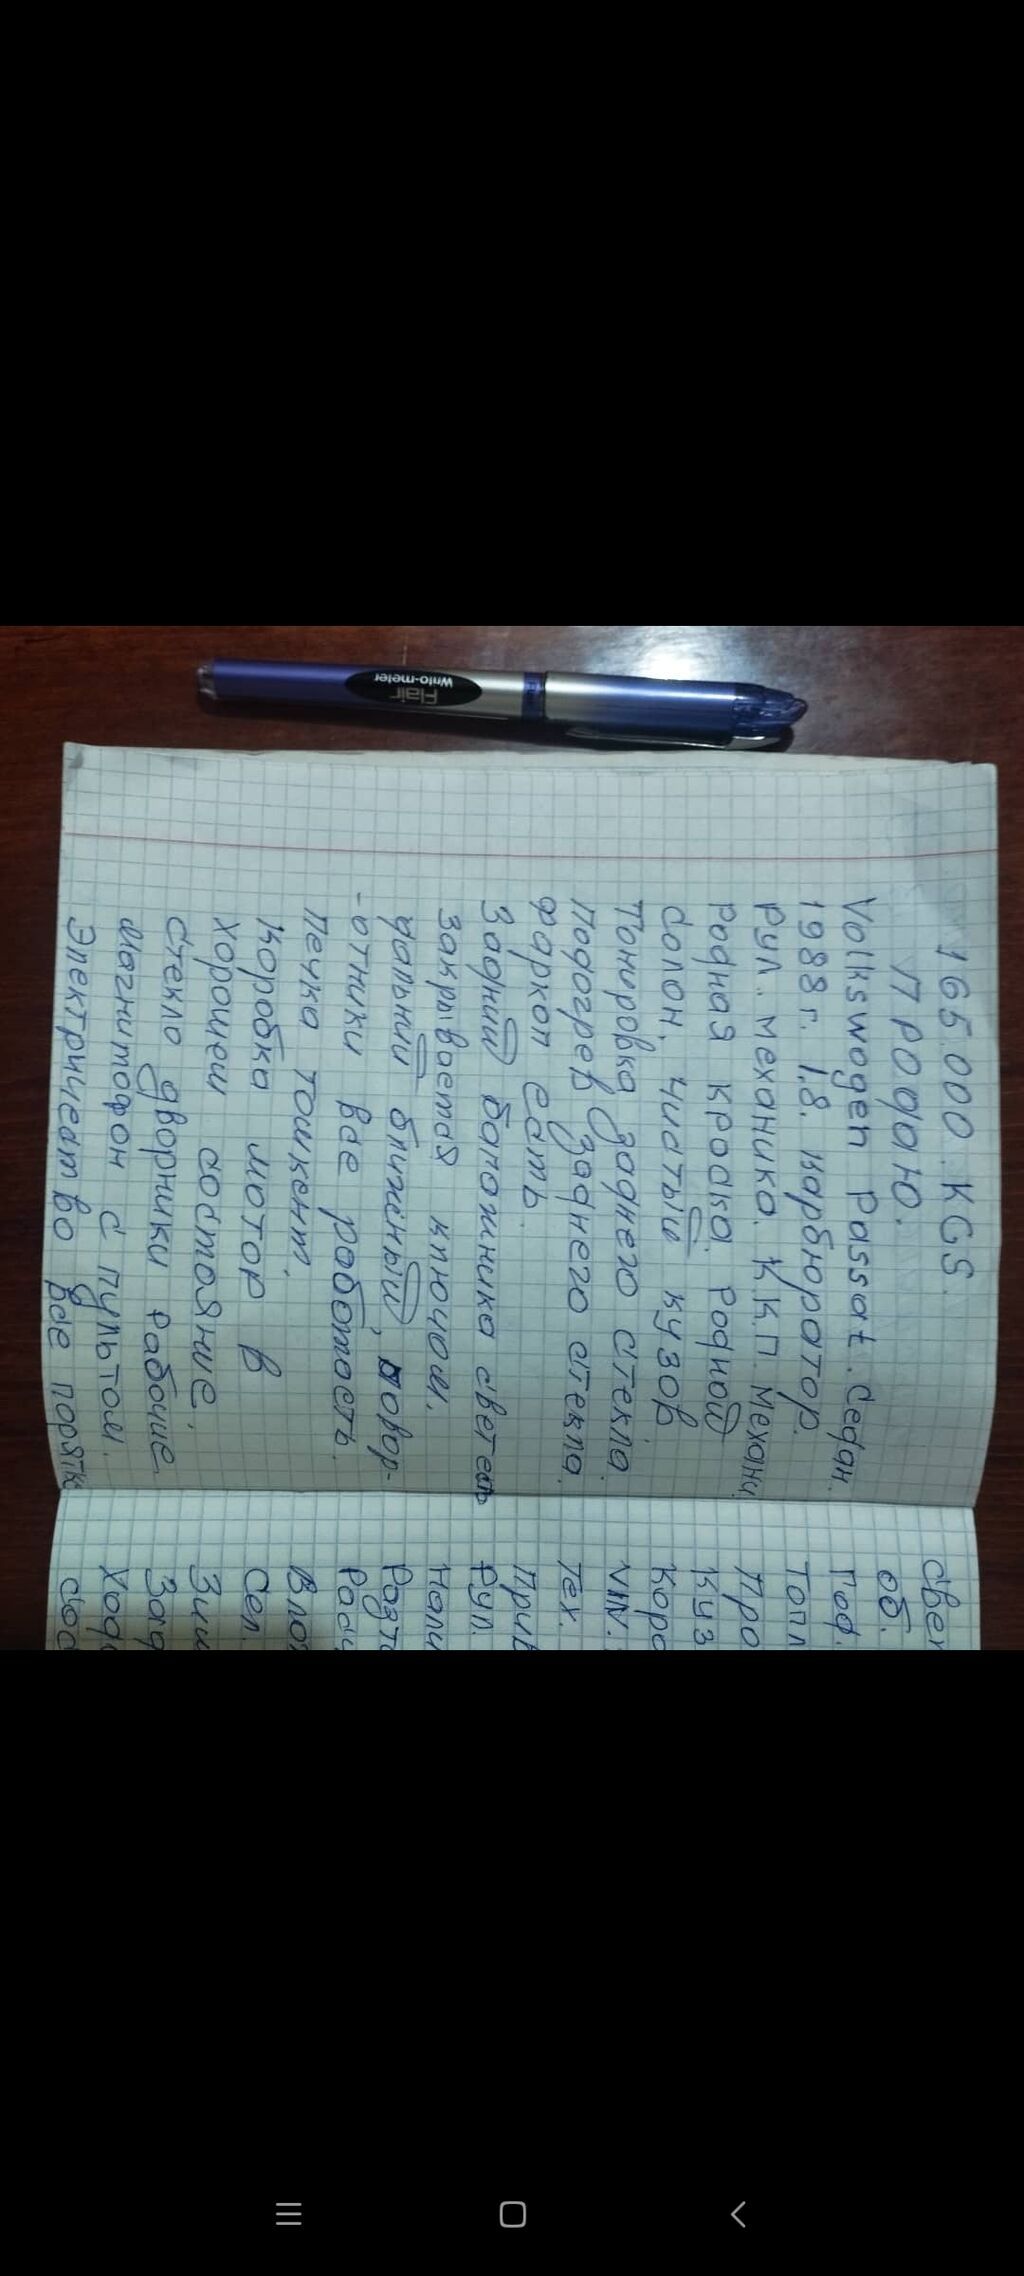 Flair
Writo-meter
165.000.KGS.
Продаю.
Volkswagen Passat. Седан.
1988г. 1,8. карбюратор.
Рул. механика. К.К.П. механи
родная краска. Родной
салон, чистый кузов
Тонировка заднего стекла.
Подогрев заднего стекла.
Фаркоп есть.
Задний багажника светесь
закрывается ключом.
дальний ближный, повор-
-отники все работаеть.
Печка ташкент.
коробка мотор в
хорошем состояние.
Стекло дворники рабочие
магнитофон с пультом.
Электричество все порятке
свет
об.
Год.
Топл
Про
Куз
Коро
VIN.
Тех.
Прив
Рул.
Нали
Разт
Рас
Влож
Сел.
Зим
Зад
Ход
Сос